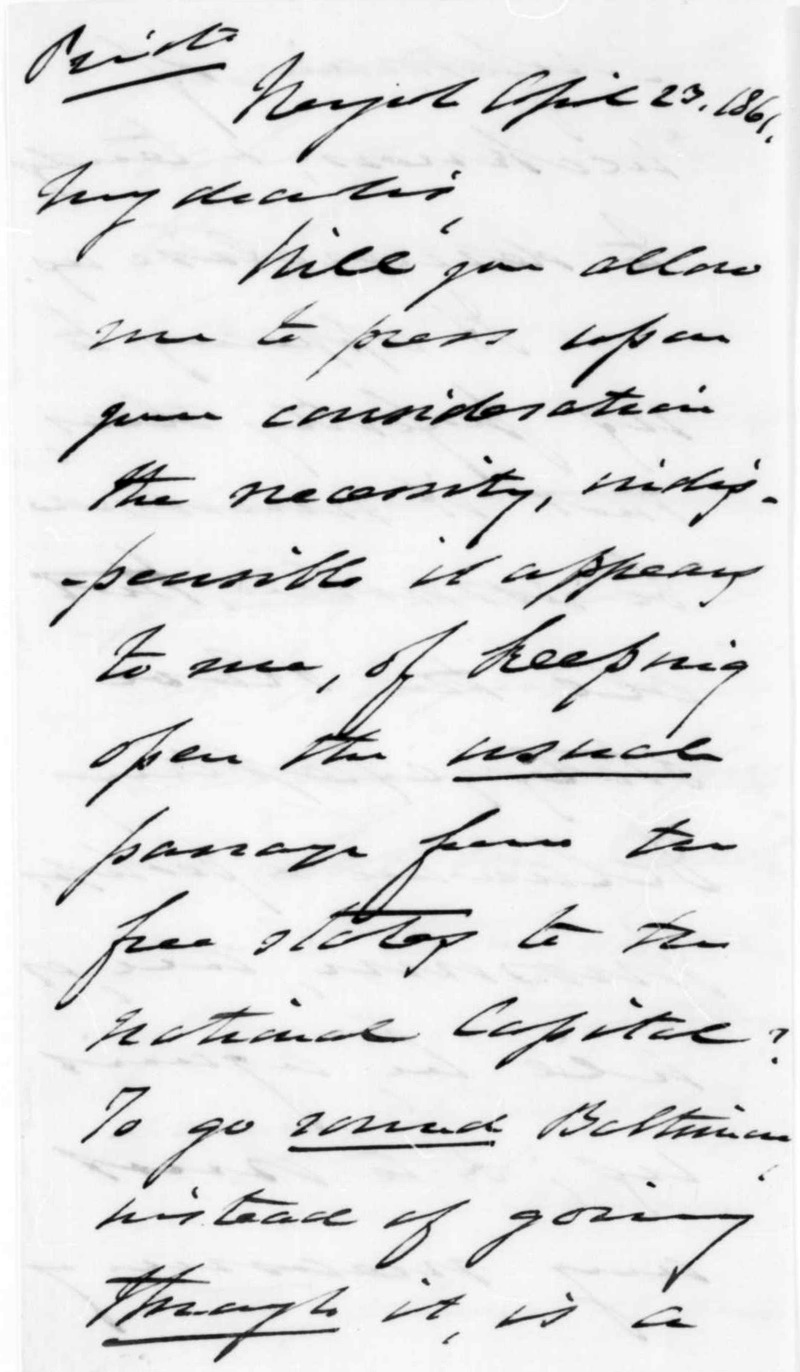 Private
New York April 23. 1861.
My dear Sir,
Will you allow
me to press upon
your consideration
the necessity, indis-
-pensible it appears
to me, of keeping
open the usual
passage from the
free states to the
National Capital?
To go round Baltimore,
instead of going
through it, is a